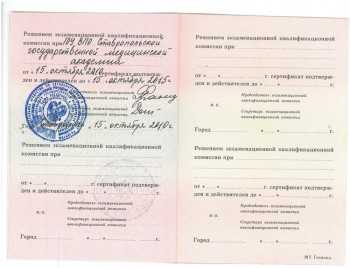 Решением экзаменационной квалификационной
комиссии при ГОУ ВПО Ставропольской
государственной медицинской
академии
от « 15 » октября 2010 г. сертификат подтверж-
ден и действителен до « 15 » октября 2015 г.
экзаменационной
квалификационной комиссии
15. октября 2010 г.
Решением экзаменационной квалификационной
комиссии при
от « » г. сертификат подтверж-
ден и действителен до « » г.
Председатель экзаменационной
квалификационной комиссии
М.П.
Секретарь экзаменационной
квалификационной комиссии
Город « » г.
Решением экзаменационной квалификационной
комиссии при
от « » г. сертификат подтверж-
ден и действителен до « » г.
Председатель экзаменационной
квалификационной комиссии
М.П.
Секретарь экзаменационной
квалификационной комиссии
Город « » г.
Решением экзаменационной квалификационной
комиссии при
от « » г. сертификат подтверж-
ден и действителен до « » г.
Председатель экзаменационной
квалификационной комиссии
М.П.
Секретарь экзаменационной
квалификационной комиссии
Город « » г.
МТ Гознака.